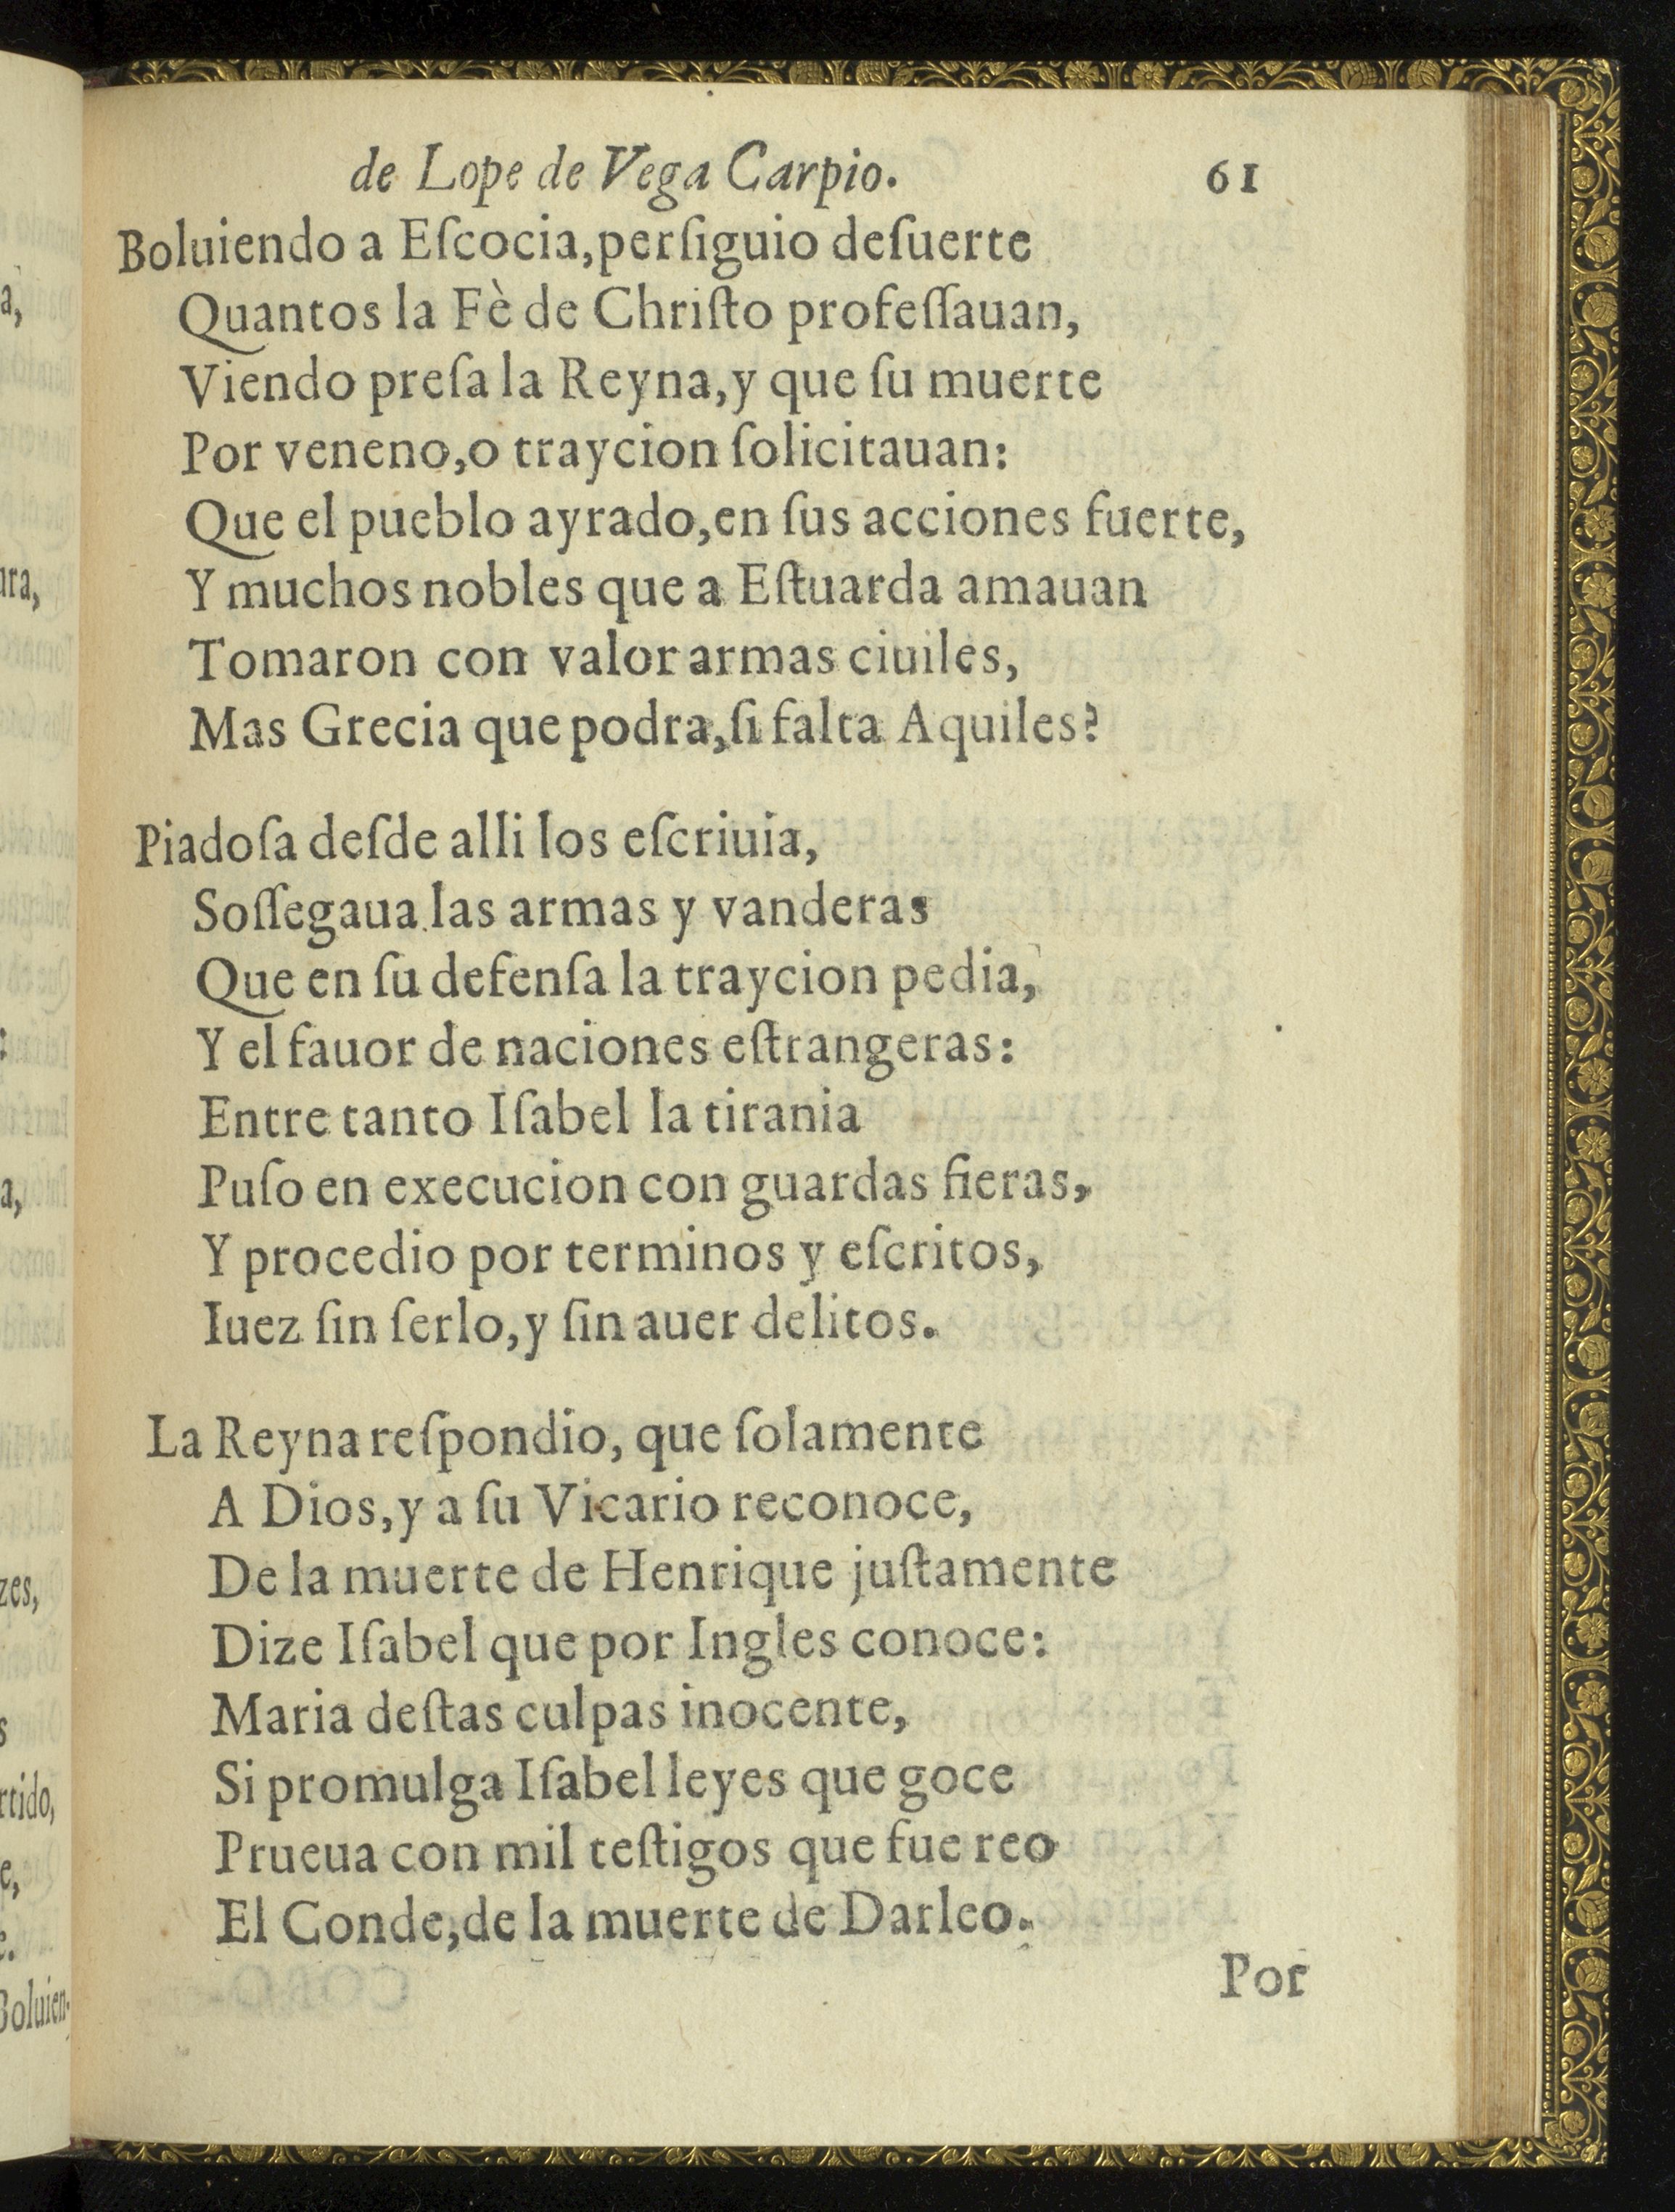 de Lope de Vega Carpio. 61
Boluiendo a Eſcocia,perſiguio deſuerte
Quantos la Fè de Chriſto profeſſauan,
Viendo preſa la Reyna,y que ſu muerte
Por veneno,o traycion ſolicitauan:
Que el pueblo ayrado,en ſus acciones fuerte,
Y muchos nobles que a Eſtuarda amauan
Tomaron con valor armas ciuiles,
Mas Grecia que podra,ſi falta Aquiles?
Piadoſa deſde alli los eſcriuia,
Soſſegaua las armas y vanderas
Que en ſu defenſa la traycion pedia,
Y el fauor de naciones eſtrangeras:
Entre tanto Iſabel la tirania
Puſo en execucion con guardas fieras,
Y procedio por terminos y eſcritos,
Iuez ſin ſerlo,y ſin auer delitos.
La Reyna reſpondio, que ſolamente
A Dios,y a ſu Vicario reconoce,
De la muerte de Henrique juſtamente
Dize Iſabel que por Ingles conoce:
Maria deſtas culpas inocente,
Si promulga Iſabel leyes que goce
Prueua con mil teſtigos que fue reo
El Conde,de la muerte de Darleo.
Por